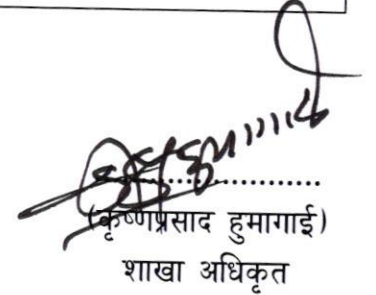 ....................
(कृष्णप्रसाद हुमागाई)
शाखा अधिकृत